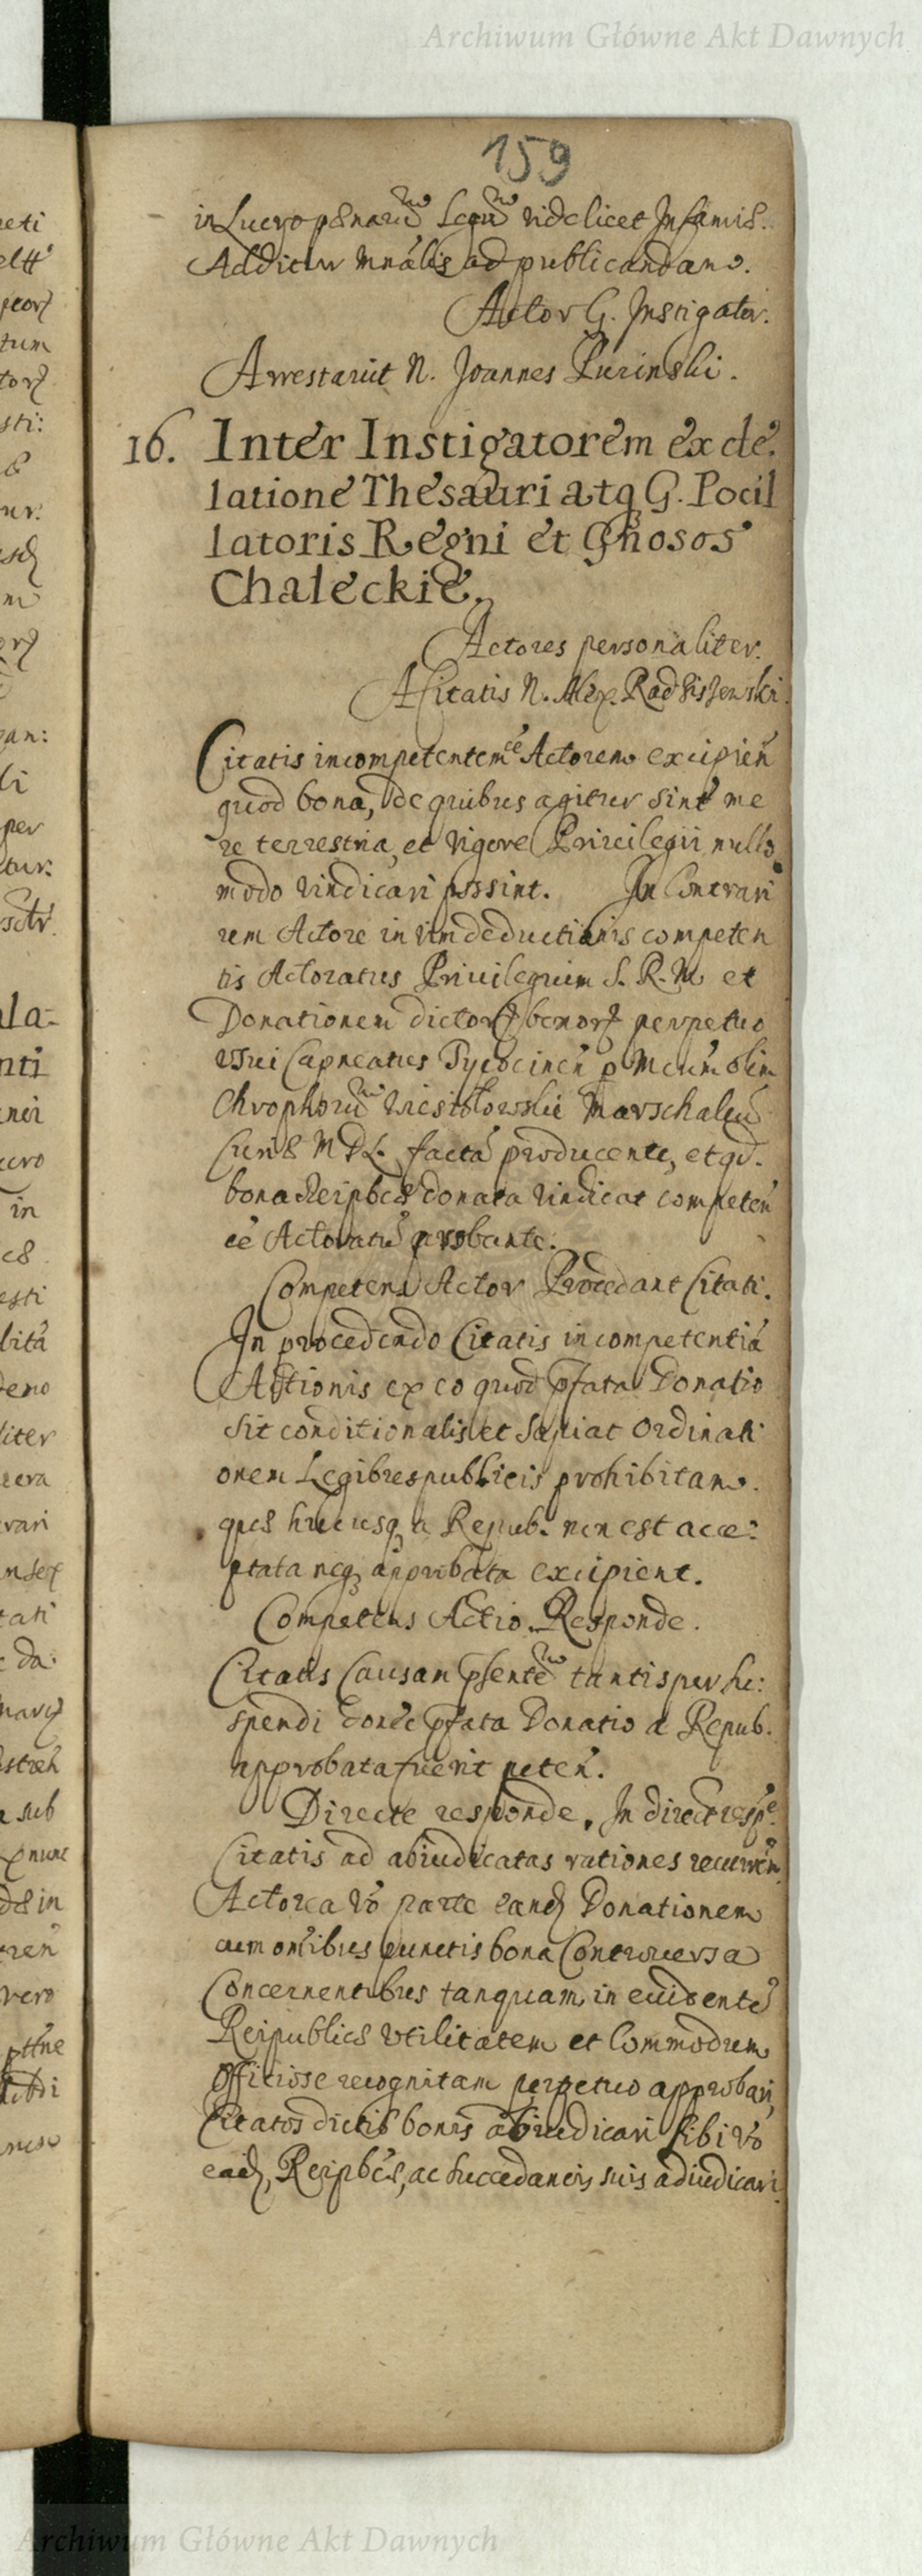 Archiwum Główne Akt Dawnych
159
in Lucro pænarũ Legũ videlicet Infamiæ.
Additur Mnãlis ad publicandam.
Actor G. Instigator.
Arrestavit N. Joannes Purinski.
16. Inter Instigatorem ex de,
latione Thesauri atq G. Pocil
latoris Regni et Gnosos
Chaleckie.
Actores personaliter.
A Citatis N. Alex. Radziszewski.
Citatis incompetentem eẽ Actorem excipien̄
quod bona, de quibus agitur sint me
re terrestria, et vigore Privilegii nullo
modo vindicari possint. In Contrari
rem Actore in vim deductionis competen
tis Actoratus Privilegium S. R. M. et
Donationem dictorꝝ bonorꝝ perpetuo
usui Capneatus Tycocinen̄ p Mcum olim
Chrophorũ Wiesiolowski Marschalcũ
Curiæ M D L. factã producente, et qd.
bona Reipbcæ donata vindicat competen̄
eẽ Actoratũ probante.
Competens Actor Procedant Citati.
In procedendo Citatis incompetentiã
Actionis ex eo quod pfata Donatio
sit conditionalis et sapiat ordinati
onem Legibus publicis prohibitam.
quæ hucusq a Repub. non est acce:
ptata neq approbata excipient.
Competens Actio. Responde.
Citatis Causam psentẽ tantisper su:
spendi donec pfata Donatio a Repub.
approbata fuerit peten̄.
Directe responde. In direct. respe.
Citatis ad abiudicatas rationes recurren̄
Actorea vo parte eand Donationem
cum omibus punctis bona Controversa
Concernentibus tanquam in evidentẽ
Reipublicæ utilitatem et Commodum
officiose recognitam perpetuo approbari,
Citatos dictis bonis abiudicari sibi vo
ead, Reipbcæ, ac succedaneis suis adiudicari
eti
eltt
tum
sti:
m
per
tur.
ala-
nti
in
esti
iter
vari
tati
sub
nunc
vero
Archiwum Główne Akt Dawnych